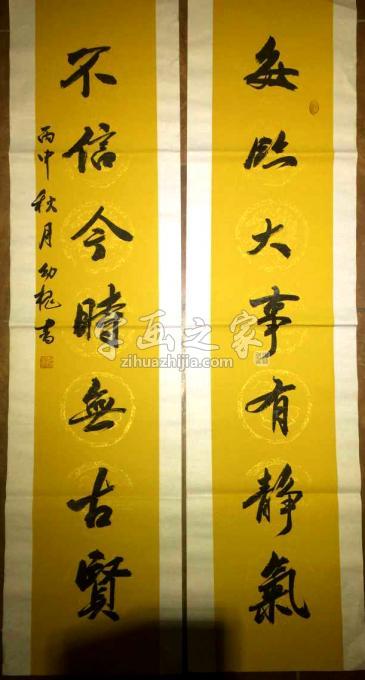 每臨大事有静氣
不信今時無古賢
丙申秋月幼槐書
字画之家
zihuazhijia.com